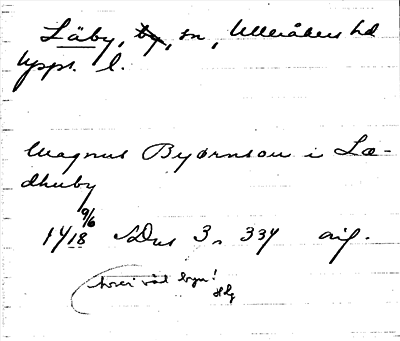 Läby, by, sn, Ulleråkers hd
Upps. l.
Magnus Byørnson i Læ-
dhuby
1418 9/6 SDns 3, 334 orig.
avser väl byn!